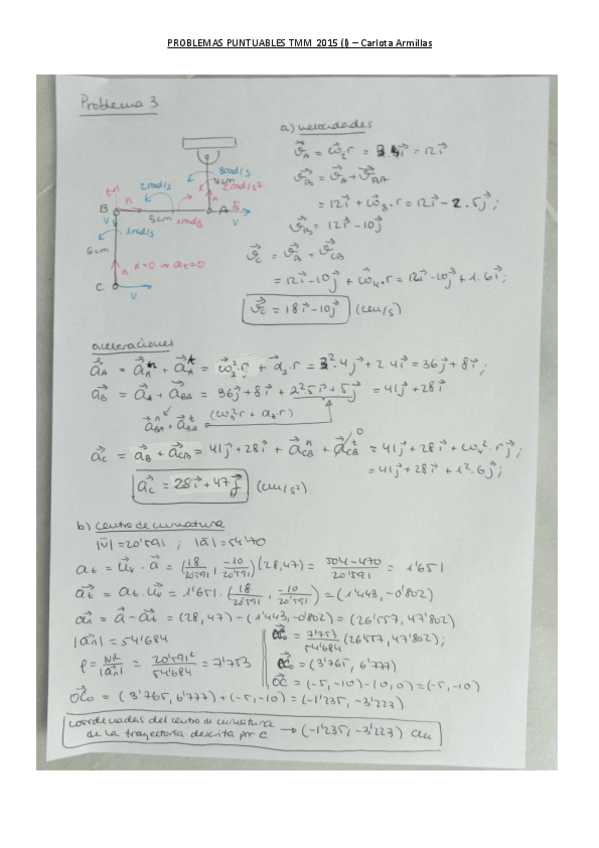 PROBLEMAS PUNTUABLES TMM 2015 (I) – Carlota Armillas
Problema 3
a) velocidades
3rad/s
4cm
2rad/s²
2rad/s
B
A
5cm
1rad/s
v
v
1rad/s
6cm
n
α=0 → at=0
C
v
v⃗A = ω⃗2·r = 3·4i⃗ = 12i⃗
v⃗B = v⃗A + v⃗BA
= 12i⃗ + ω⃗3·r = 12i⃗ - 2·5j⃗;
v⃗B = 12i⃗ - 10j⃗
v⃗C = v⃗B + v⃗CB
= 12i⃗ - 10j⃗ + ω4·r = 12i⃗ - 10j⃗ + 1·6i⃗;
v⃗C = 18i⃗ - 10j⃗ (cm/s)
aceleraciones
a⃗A = a⃗An + a⃗At = ω2²·r + α2·r = 3²·4j⃗ + 2·4i⃗ = 36j⃗ + 8i⃗;
a⃗B = a⃗A + a⃗BA = 36j⃗ + 8i⃗ + 2²·5i⃗ + 5j⃗ = 41j⃗ + 28i⃗
a⃗BAn + a⃗BAt = (ω3²r + α3·r)
a⃗C = a⃗B + a⃗CB = 41j⃗ + 28i⃗ + a⃗CBn + a⃗CBt 0 = 41j⃗ + 28i⃗ + ω4²·rj⃗;
= 41j⃗ + 28i⃗ + 1²·6j⃗;
a⃗C = 28i⃗ + 47j⃗ (cm/s²)
b) centro de curvatura
|v⃗| = 20'591 ; |a⃗| = 54'70
at = u⃗v · a⃗ = (18/20'591, -10/20'591)(28,47) = 504-470/20'591 = 1'651
a⃗t = at·u⃗v = 1'651·(18/20'591, -10/20'591) = (1'443, -0'802)
a⃗n = a⃗ - a⃗t = (28,47) - (1'443, -0'802) = (26'557, 47'802)
|a⃗n| = 54'684
ρ = v²/|a⃗n| = 20'591²/54'684 = 7'753
CC⃗0 = 7'753/54'684 (26'557, 47'802);
CC⃗0 = (3'765, 6'777)
OC⃗ = (-5,-10)-(0,0) = (-5,-10)
OC⃗0 = (3'765, 6'777) + (-5,-10) = (-1'235, -3'223)
coordenadas del centro de curvatura
de la trayectoria descrita por C → (-1'235, -3'223) cm